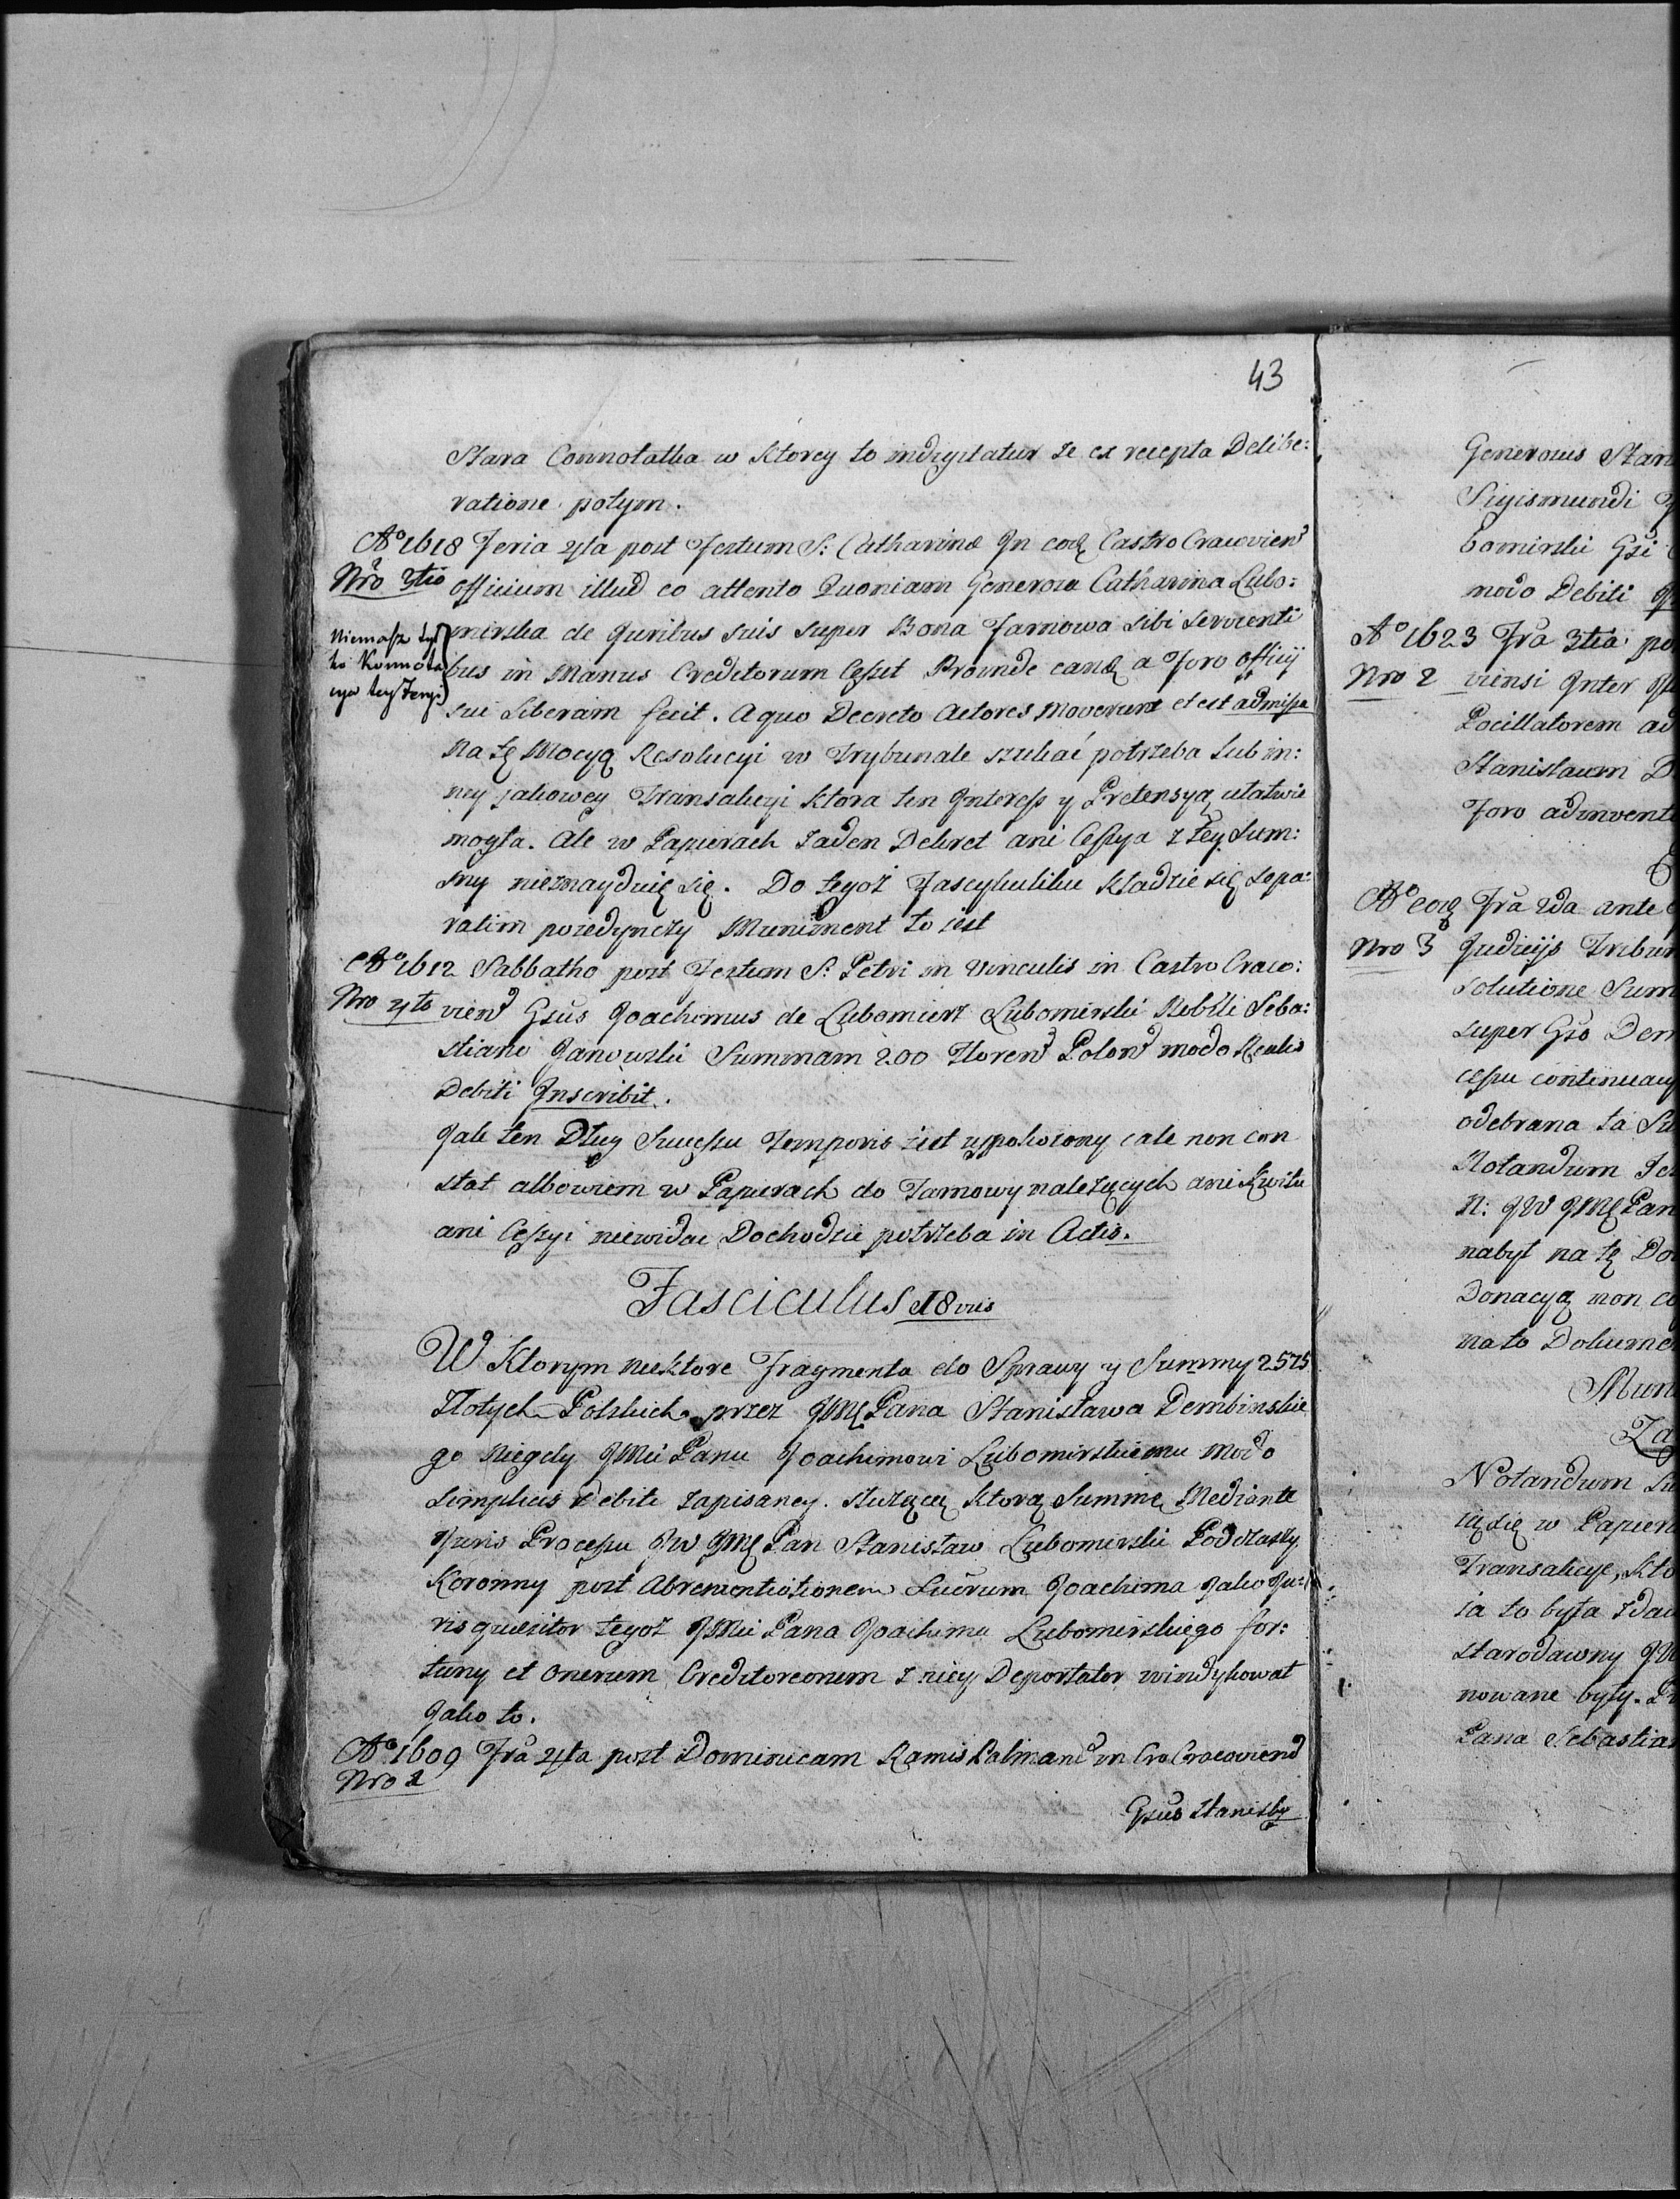 43
Stara Connotatka w Ktorey to indigitatur że ex recepta Delibe:
ratione potym.
Ao 1618 Feria 4ta post Festum S: Catharinæ In eoq Castro Cracovien
Nro 3tio officium illud eo attento Quoniam Generosa Catharina Lubo:
mirska de Juribus suis super Bona Jarnowa sibi servienti
Niemasz tyl
ko Konnota
cya tey Tenyi
bus in Manus Creditorum Cessit Proinde eanq a Foro officij
sui Liberam fecit. A quo Decreto Actores Moverunt et est admissa
Na tę Mocyą Resolucyi w Trybunale szukać potrzeba Lub in:
ney jakowey Transakcyi ktora ten Interess y Pretensyą ułatwić
mogła. Ale w Papierach żaden Dekret ani Cessya z tey Sum:
my nieznayduię się. Do tegoż Fascykulihu kładzie się sepa:
ratim poiedynczy Muniment to iest
Ao 1612 Sabbatho post Festum S: Petri in Vinculis in Castro Craco:
Nro 4to vien Gsus Joachimus de Lubomierz Lubomirski Nobili Seba:
stiano Janowski Summam 200 Floren Polon modo Realis
Debiti Inscribit.
Jak ten Dług Successu Temporis iest uspokoiony cale non con
stat albowiem w Papierach do Jarnowy należących ani Kwitu
ani Cessyi niewidać Dochodzić potrzeba in Actis.
Fasciculus 18vus
W Ktorym niektore Fragmenta do Sprawy y Summy 2575
Złotych Polskich przez JMę Pana Stanisława Dembinskie
go niegdy JMci Panu Joachimowi Lubomirskiemu modo
simplicis Debiti zapisaney. służącey Ktorą Summę Mediante
Juris Processu JW JMę Pan Stanisław Lubomirski Podczaszy
Koronny post Abrenuntiationem Sucrum Joachima Jako Ju:
ris quæsitor tegoż JMci Pana Joachima Lubomirskiego for:
tuny et onerum Creditoreorum z niey Deportator windykował
Jako to.
Ao 1609 Fra 4ta post Dominicam Ramis Palmarum in Cro Cracovien
Nro 1
Gsus Stanisły
Generosus Stan
Sigismundi
bomirski Gsi
modo Debiti
Ao 1623 Fra 3tia po
Nro 2 viensi Inter
Pocillatorem ad
Stanislaum D
Foro adinvent
Ao eoq Fra 2da ante
Nro 3 Judicijs Tribun
Solutione Sum
super Gso Dem
cessu continuau
odebrana ta Su
Notandum
N: JW JMę Pan
nabył na tę Do
Donacyą non co
na to Dokume
Mun
Za
Notandum
ią się w Papier
Transakcye, kto
ia to była zda
starodawny
nowane były.
Pana Sebastia